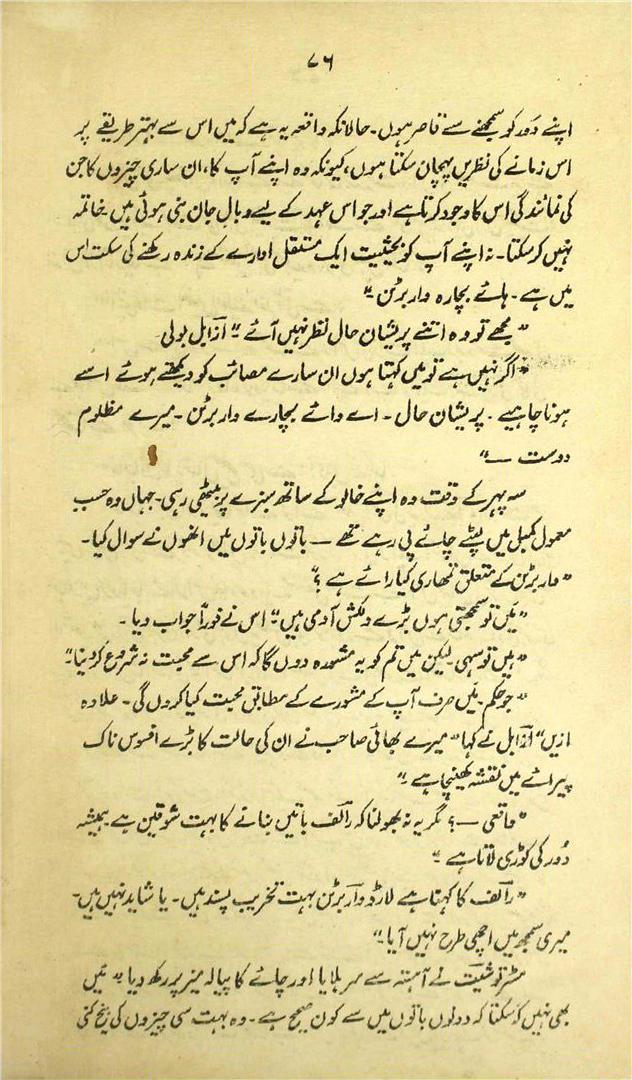 ۷۶
اپنے دَور کو سمجھنے سے قاصر ہوں۔ حالانکہ واقعہ یہ ہے کہ میں اس سے بہتر طریقے پر
اس زمانے کی نظریں پہچان سکتا ہوں، کیونکہ وہ اپنے آپ کا، ان ساری چیزوں کا جن
کی نمائندگی اس کا وجود کرتا ہے اور جو اس عہد کے لیے وبالِ جان بنی ہوئی ہیں خاتمہ
نہیں کر سکتا۔ نہ اپنے آپ کو بحیثیت ایک مستقل ادارے کے زندہ رکھنے کی سکت اس
میں ہے۔ ہائے بچارہ واربرٹن۔“
”مجھے تو وہ اتنے پریشان حال نظر نہیں آئے“ ازابل بولی
”اگر نہیں ہے تو میں کہتا ہوں ان سارے مصائب کو دیکھتے ہوئے اسے
ہونا چاہیے۔ پریشان حال۔ اے وائے بچارے واربرٹن۔ میرے مظلوم
دوست —“
سہ پہر کے وقت وہ اپنے خالو کے ساتھ سبزے پر بیٹھی رہی۔ جہاں وہ حسب
معمول کمبل میں لپٹے چائے پی رہے تھے — باتوں باتوں میں انھوں نے سوال کیا۔
”واربرٹن کے متعلق تمھاری کیا رائے ہے؟“
”میَں تو سمجھتی ہوں بڑے دلکش آدمی ہیں“ اس نے فوراً جواب دیا۔
”ہیں تو سہی۔ لیکن میں تم کو یہ مشورہ دوں گا کہ اس سے محبت نہ شروع کر دینا“
”جو حکم۔ میَں صرف آپ کے مشورے کے مطابق محبت کیا کروں گی۔ علاوہ
ازیں“ ازابل نے کہا ”میرے بھائی صاحب نے ان کی حالت کا بڑے افسوس ناک
پیرائے میں نقشہ کھینچا ہے۔“
”واقعی —؟ مگر یہ نہ بھولنا کہ رالف باتیں بنانے کا بہت شوقین ہے ہمیشہ
دُور کی کوڑی لاتا ہے“
”رالف کا کہنا ہے لارڈ واربرٹن بہت تخریب پسند ہیں۔ یا شاید نہیں ہیں۔
میری سمجھ میں اچھی طرح نہیں آیا۔“
مسٹر توشیت نے آہستہ سے سر ہلایا اور چائے کا پیالہ میز پر رکھ دیا ”میَں
بھی نہیں کہہ سکتا کہ دونوں باتوں میں سے کون صحیح ہے۔ وہ بہت سی چیزوں کی بیخ کنی